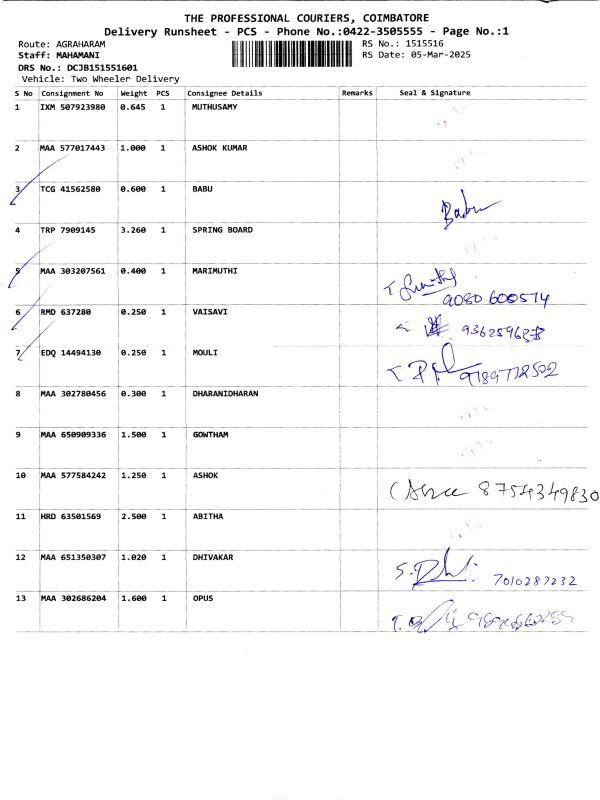 THE PROFESSIONAL COURIERS, COIMBATORE
Delivery Runsheet - PCS - Phone No.:0422-3505555 - Page No.:1
Route: AGRAHARAM RS No.: 1515516
Staff: MAHAMANI RS Date: 05-Mar-2025
DRS No.: DCJB151551601
Vehicle: Two Wheeler Delivery
S No Consignment No Weight PCS Consignee Details Remarks Seal & Signature
1 IXM 507923980 0.645 1 MUTHUSAMY
2 MAA 577017443 1.000 1 ASHOK KUMAR
3 TCG 41562580 0.600 1 BABU Babu
4 TRP 7909145 3.260 1 SPRING BOARD
5 MAA 303207561 0.400 1 MARIMUTHI
9080 600514
6 RMD 637280 0.250 1 VAISAVI
7 EDQ 14494130 0.250 1 MOULI 9789772502
8 MAA 302780456 0.300 1 DHARANIDHARAN
9 MAA 650909336 1.500 1 GOWTHAM
10 MAA 577584242 1.250 1 ASHOK 8754349830
11 HRD 63501569 2.500 1 ABITHA
12 MAA 651350307 1.020 1 DHIVAKAR 7010287232
13 MAA 302686204 1.600 1 OPUS